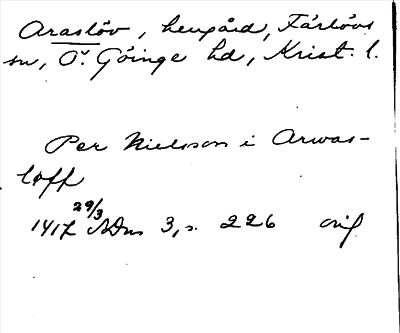 Araslöv, herrgård, Färlövs
sn, Ö. Göinge hd, Krist. l.
Per Nielsson i Arwas-
löff
1417 29/3 SDns 3, s. 226 orig